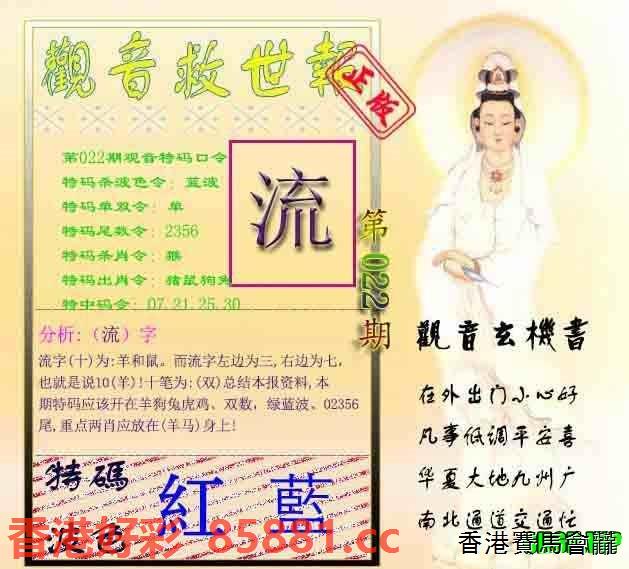 觀音救世報
正版
第022期观音特码口令
特码杀波色令：蓝波
特码单双令：单
特码尾数令：2356
特码杀肖令：猴
特码出肖令：猪鼠狗兔
特中码令：07.21.25.30
流
第022期
分析:（流）字
流字(十)为:羊和鼠。而流字左边为三,右边为七,
也就是说10(羊)!十笔为:(双)总结本报资料,本
期特码应该开在羊狗兔虎鸡、双数，绿蓝波、02356
尾,重点两肖应放在(羊马)身上!
特碼
波色
紅 藍
觀音玄機書
在外出门小心好
凡事低调平安喜
华夏大地九州广
南北通道交通忙
香港好彩 85881.cc
香港賽馬會